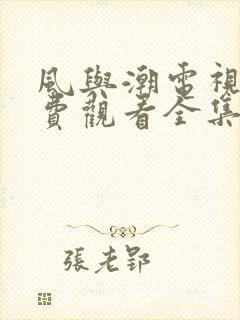 風與潮電視
費觀看全集
張老郢